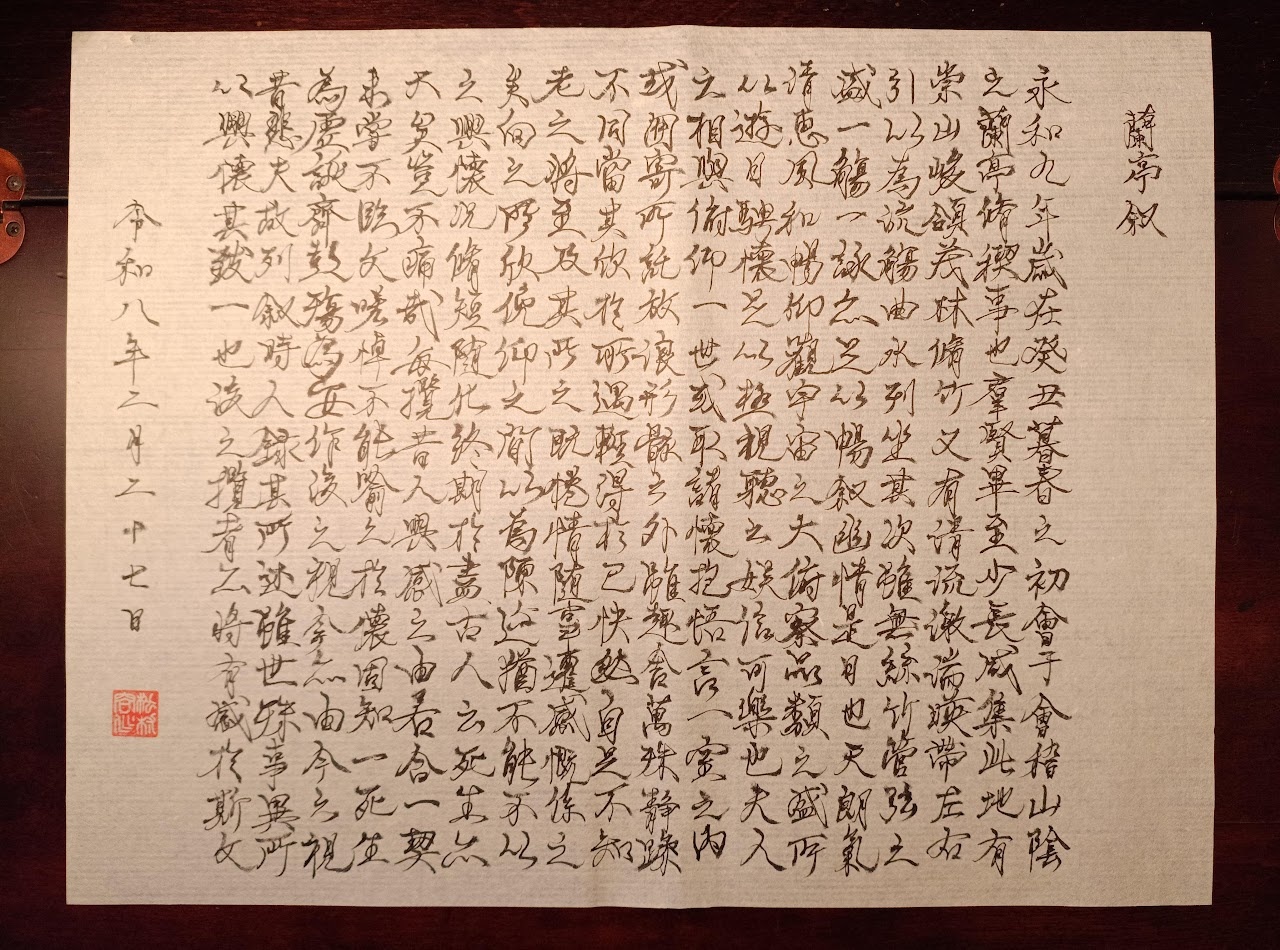 蘭亭叙
永和九年歲在癸丑暮春之初會于會稽山陰
之蘭亭脩禊事也羣賢畢至少長咸集此地有
崇山峻領茂林脩竹又有清流激湍暎帶左右
引以為流觴曲水列坐其次雖無絲竹管弦之
盛一觴一詠亦足以暢叙幽情是日也天朗氣
清惠風和暢仰觀宇宙之大俯察品類之盛所
以遊目騁懷足以極視聽之娛信可樂也夫人
之相與俯仰一世或取諸懷抱悟言一室之內
或因寄所託放浪形骸之外雖趣舍萬殊靜躁
不同當其欣於所遇暫得於己快然自足不知
老之將至及其所之既惓情隨事遷感慨係之
矣向之所欣俛仰之閒以為陳迹猶不能不以
之興懷況脩短隨化終期於盡古人云死生亦
大矣豈不痛哉每攬昔人興感之由若合一契
未嘗不臨文嗟悼不能喻之於懷固知一死生
為虛誕齊彭殤為妄作後之視今亦由今之視
昔悲夫故列叙時人錄其所述雖世殊事異所
以興懷其致一也後之攬者亦將有感於斯文
令和八年二月二十七日